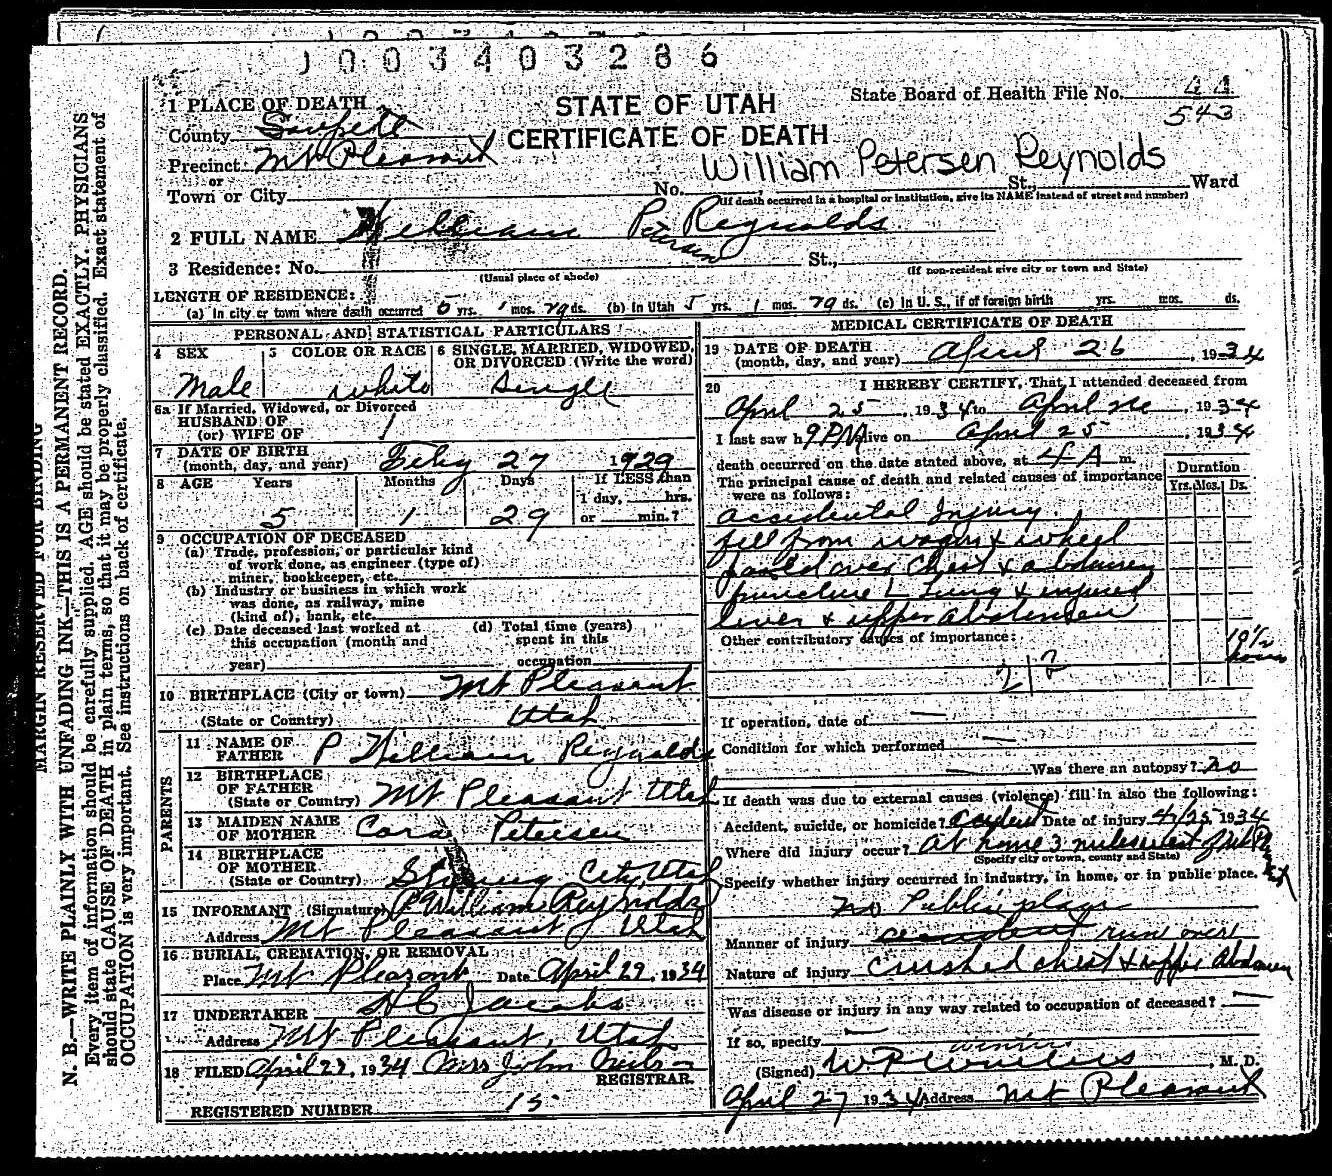 1003403286
STATE OF UTAH
CERTIFICATE OF DEATH
State Board of Health File No. 44
543
1 PLACE OF DEATH
County Sanpete
Precinct Mt Pleasant
or
Town or City No. St., Ward
William Petersen Reynolds
(If death occurred in a hospital or institution, give its NAME instead of street and number)
2 FULL NAME William Petersen Reynolds
3 Residence: No. St.,
(Usual place of abode) (If non-resident give city or town and State)
LENGTH OF RESIDENCE:
(a) In city or town where death occurred 5 yrs. 1 mos. 29 ds. (b) In Utah 5 yrs. 1 mos. 29 ds. (c) In U. S., if of foreign birth yrs. mos. ds.
PERSONAL AND STATISTICAL PARTICULARS
4 SEX
Male
5 COLOR OR RACE
white
6 SINGLE, MARRIED, WIDOWED,
OR DIVORCED (Write the word)
Single
6a If Married, Widowed, or Divorced
HUSBAND OF
(or) WIFE OF
7 DATE OF BIRTH
(month, day, and year) Feby 27 1929
8 AGE Years Months Days If LESS than
1 day, hrs.
or min.?
5 1 29
9 OCCUPATION OF DECEASED
(a) Trade, profession, or particular kind
of work done, as engineer (type of)
miner, bookkeeper, etc.
(b) Industry or business in which work
was done, as railway, mine
(kind of), bank, etc.
(c) Date deceased last worked at
this occupation (month and
year)
(d) Total time (years)
spent in this
occupation
10 BIRTHPLACE (City or town) Mt Pleasant
(State or Country) Utah
PARENTS
11 NAME OF
FATHER P William Reynolds
12 BIRTHPLACE
OF FATHER
(State or Country) Mt Pleasant Utah
13 MAIDEN NAME
OF MOTHER Cora Petersen
14 BIRTHPLACE
OF MOTHER
(State or Country) City, Utah
15 INFORMANT (Signature) P William Reynolds
Address Mt Pleasant, Utah
16 BURIAL, CREMATION, OR REMOVAL
Place Mt Pleasant Date April 29, 1934
17 UNDERTAKER H C Jacobs
Address Mt Pleasant, Utah
18 FILED April 27, 1934 Mrs John
REGISTRAR.
REGISTERED NUMBER 15
MEDICAL CERTIFICATE OF DEATH
19 DATE OF DEATH
(month, day, and year) April 26, 1934
20 I HEREBY CERTIFY, That I attended deceased from
April 25, 1934 to April 26, 1934
I last saw h 9 PM alive on April 25, 1934
death occurred on the date stated above, at 4 A m.
The principal cause of death and related causes of importance
were as follows:
Duration
Yrs. Mos. Ds.
accidental Injury.
fell from wagon & wheel
passed over Chest & abdomen
puncture L Lung & injured
liver & upper Abdomen
Other contributory causes of importance:
19 1/2
hours
212
If operation, date of —
Condition for which performed —
Was there an autopsy? no
If death was due to external causes (violence) fill in also the following:
Accident, suicide, or homicide? Accident Date of injury 4/25, 1934
Where did injury occur? At home 3 miles west of Mt Pleasant
(Specify city or town, county and State)
Specify whether injury occurred in industry, in home, or in public place.
no Public place
Manner of injury accident run over
Nature of injury crushed chest & upper Abdomen
Was disease or injury in any way related to occupation of deceased? —
If so, specify —
(Signed) W P Winters, M. D.
winters
April 27 1934 Address Mt Pleasant
MARGIN RESERVED FOR BINDING
N. B.—WRITE PLAINLY WITH UNFADING INK—THIS IS A PERMANENT RECORD.
Every item of information should be carefully supplied. AGE should be stated EXACTLY. PHYSICIANS
should state CAUSE OF DEATH in plain terms, so that it may be properly classified. Exact statement of
OCCUPATION is very important. See instructions on back of certificate.